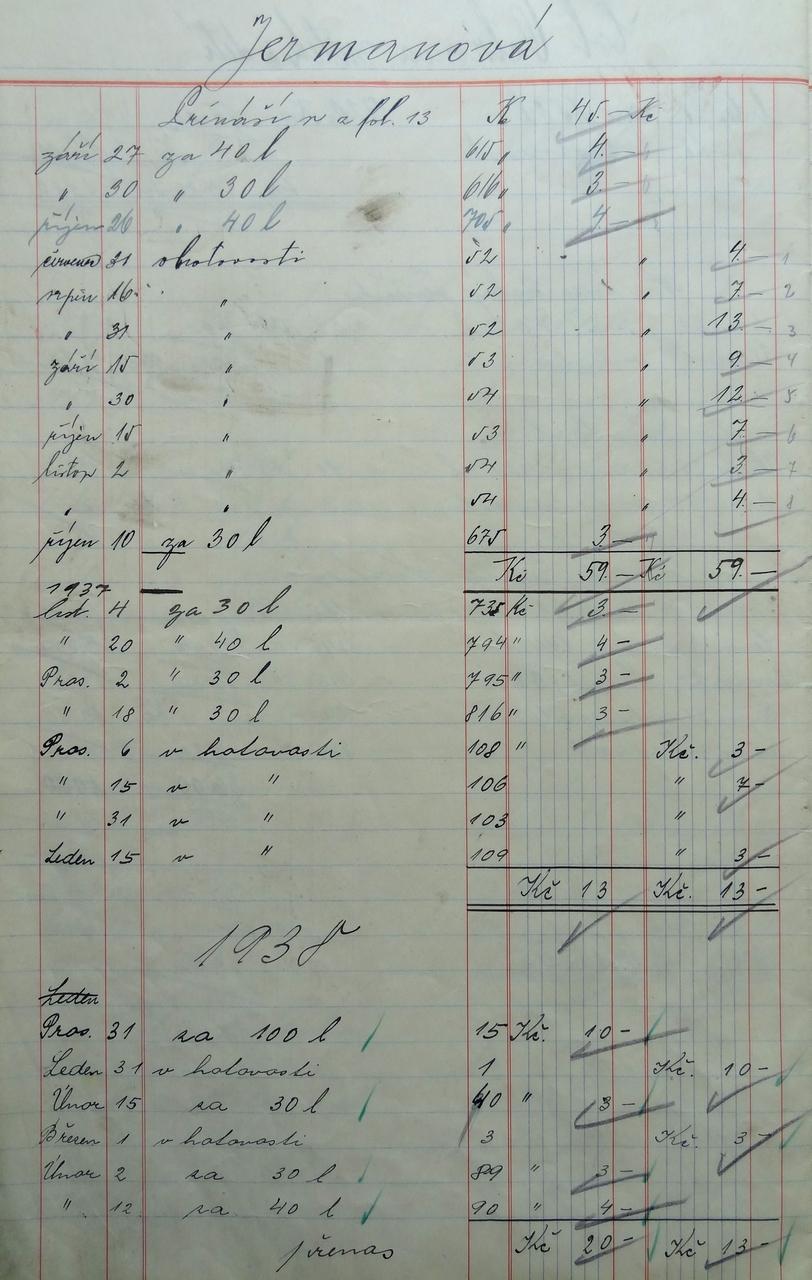 Jermanová
Přináší se z fol. 13 Kč 45.— Kč
září 27 za 40 l 615 " 4.—
" 30 " 30 l 616 " 3.—
říjen 26 " 40 l 705 " 4.—
červenec 31 v hotovosti 52 " 4.— 1
srpen 16 " 52 " 7.— 2
" 31 " 52 " 13.— 3
září 15 " 53 " 9.— 4
" 30 " 54 " 12.— 5
říjen 15 " 53 " 7.— 6
listop 2 " 54 " 3.— 7
" " 54 " 4.— 8
říjen 10 za 30 l 675 3.—
Kč 59.— Kč 59.—
1937
list. 4 za 30 l 735 Kč 3.—
" 20 " 40 l 794 " 4—
Pros. 2 " 30 l 795 " 3—
" 18 " 30 l 816 " 3—
Pros. 6 v hotovosti 108 " Kč. 3—
" 15 v " 106 " 7—
" 31 v " 103 "
Leden 15 v " 109 " 3—
Kč 13 Kč. 13—
1938
Leden
Pros. 31 za 100 l 15 Kč. 10—
Leden 31 v hotovosti 1 Kč. 10—
Únor 15 za 30 l 40 " 3—
Březen 1 v hotovosti 3 Kč. 3—
Únor 2 za 30 l 89 " 3—
" 12 za 40 l 90 " 4—
přenos Kč 20— Kč 13—